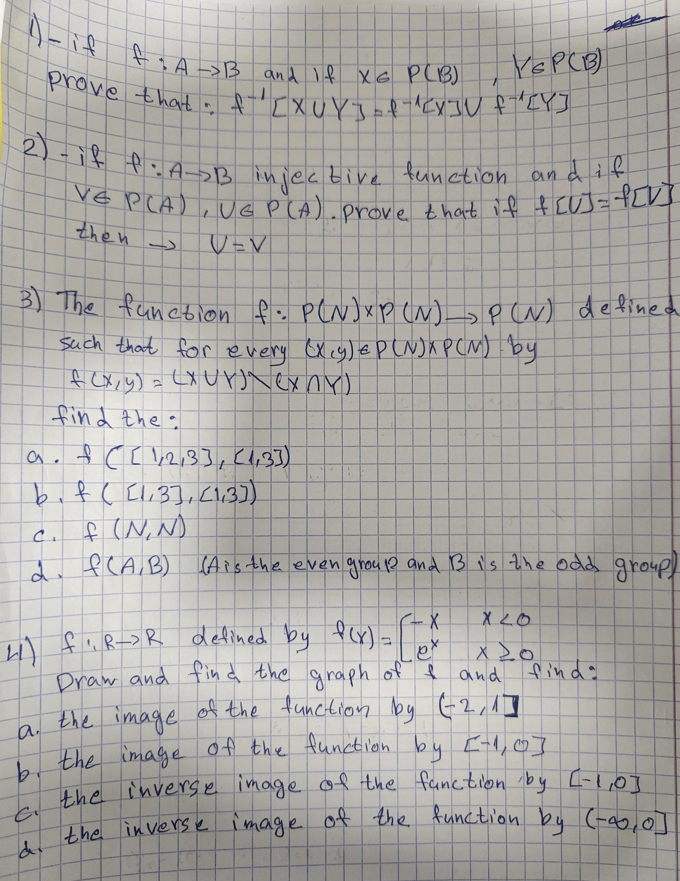 1) - if f : A → B and if X ∈ P(B) , Y ∈ P(B)
prove that : f⁻¹[X∪Y] = f⁻¹[X] ∪ f⁻¹[Y]
2) - if f : A → B injective function and if
V ∈ P(A) , U ∈ P(A) . prove that if f[U] = f[V]
then → U = V
3) The function f : P(N) x P(N) → P(N) defined
such that for every (x,y) ∈ P(N) x P(N) by
f(x,y) = (X∪Y) \ (X∩Y)
find the :
a. f ([1,2,3], [1,3])
b. f ( [1,3], [1,3])
c. f (N,N)
d. f(A,B) (A is the even group and B is the odd group)
4) f : R → R defined by f(x) = [ -x x < 0
e^x x ≥ 0
Draw and find the graph of f and find :
a. the image of the function by (-2,1]
b. the image of the function by [-1,0]
c. the inverse image of the function by [-1,0]
d. the inverse image of the function by (-∞,0]